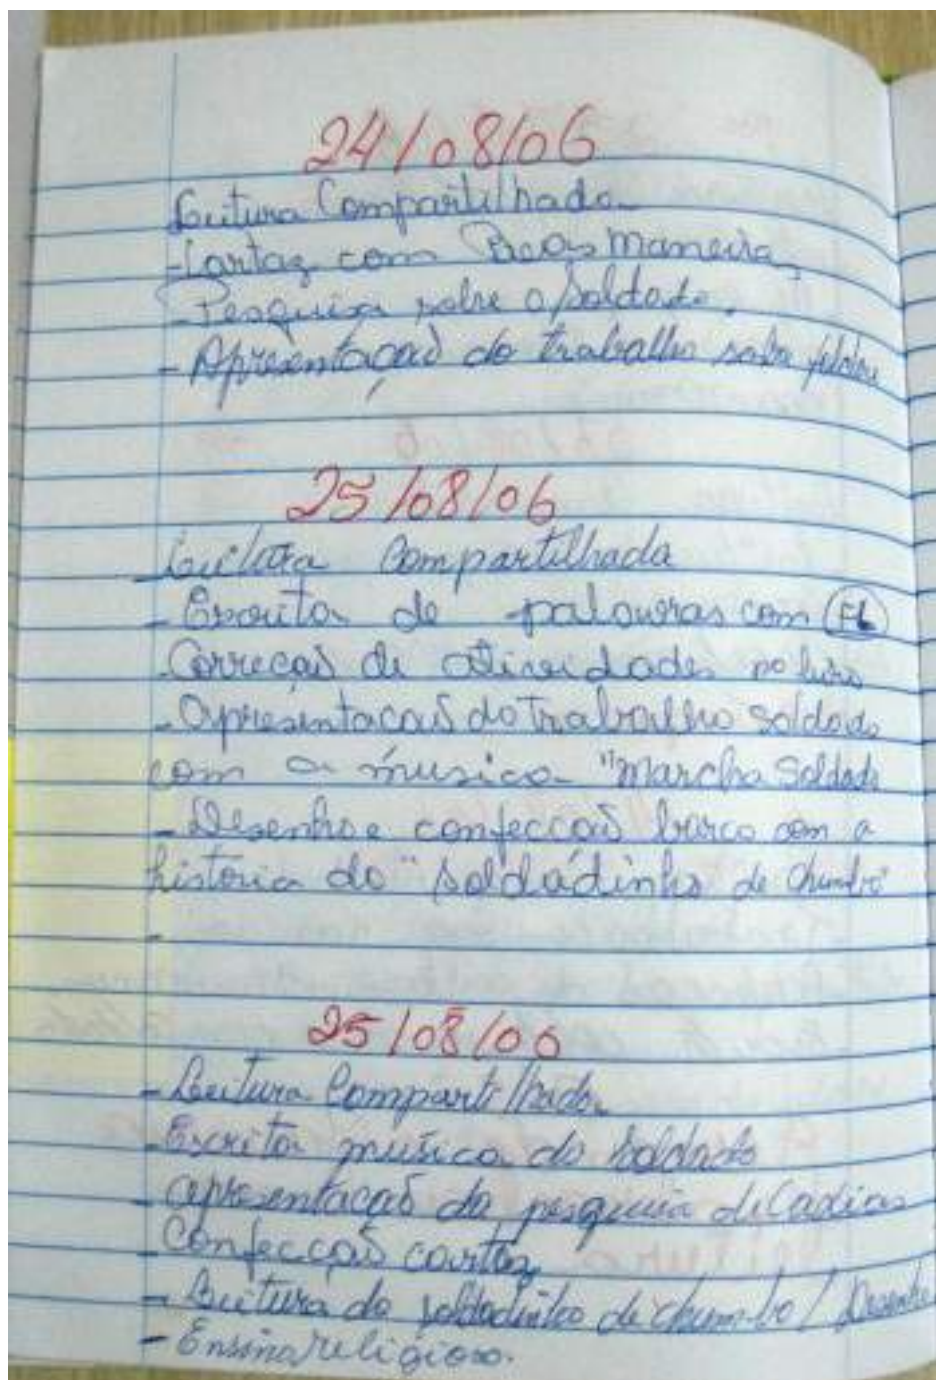 24/08/06
Leitura Compartilhada
-Cartaz com Boas maneira,
-Pesquisa sobre o soldado.
- Apresentação do trabalho sobre
25/08/06
-Leitura Compartilhada
- Escrita de palavras com (FL)
-Correção de atividades no livro
- Apresentacaõ do trabalho soldado
com a música "marcha Soldado
- Desenho e confeccaõ barco com a
historia do "soldadinho de chumbo"
-
25/08/06
- Leitura Compartilhada
- Escrita música do soldado
- apresentaçaõ da pesquisa de
- Confecçaõ cartaz
- Leitura do soldadinho de chumbo / Desenho
- Ensino religioso.